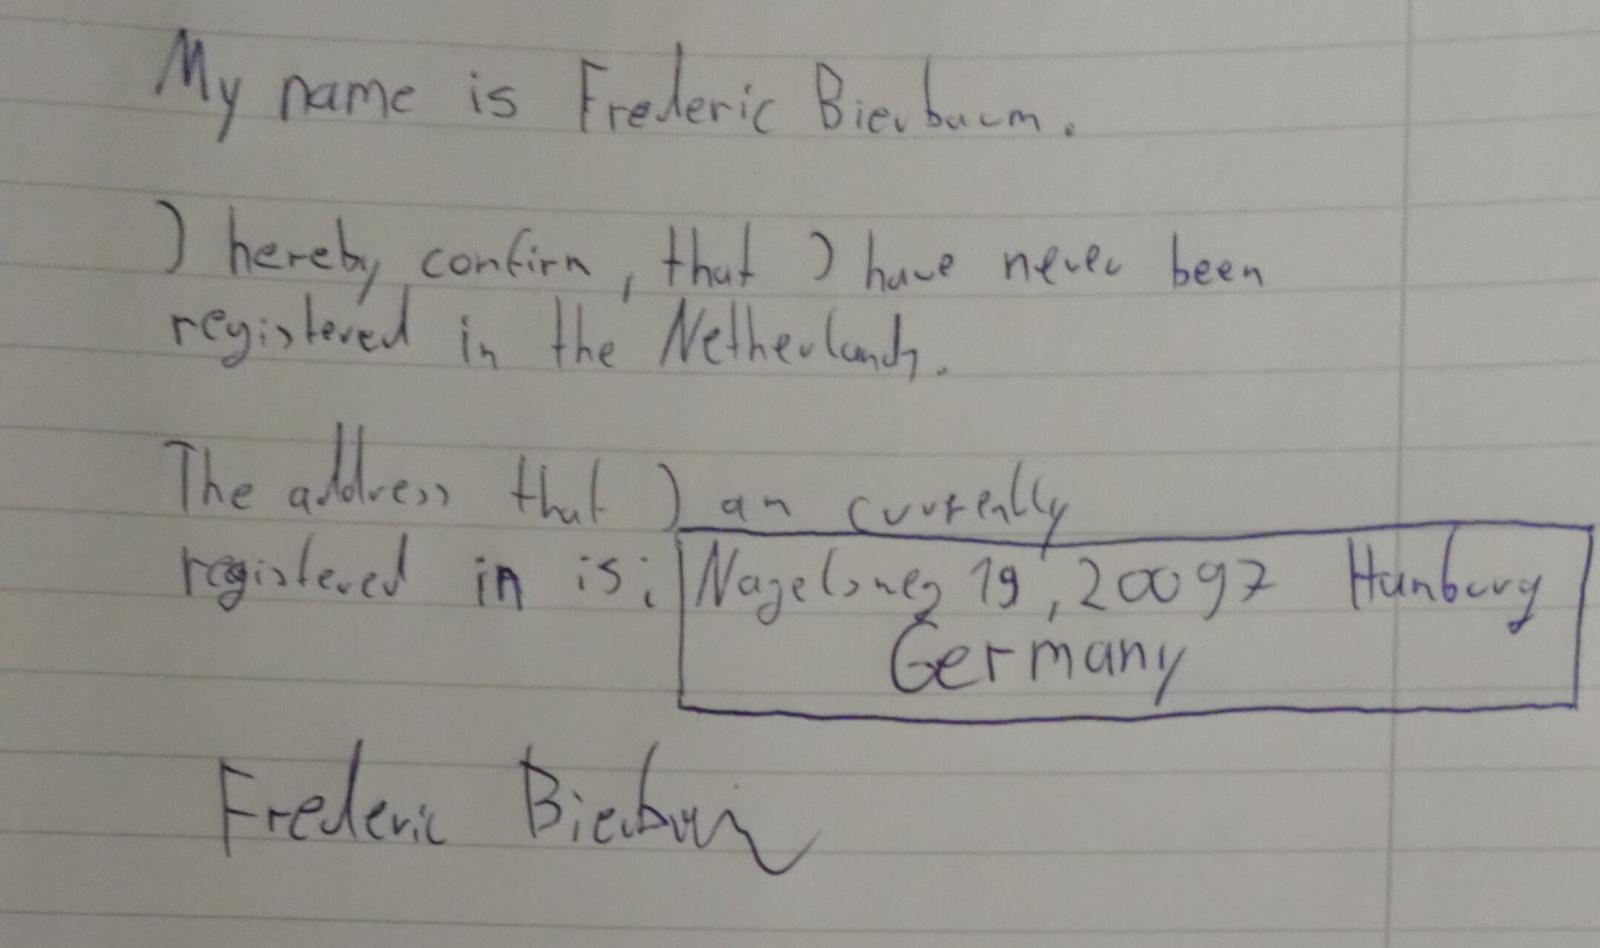 My name is Frederic Bierbaum.
I hereby confirm, that I have never been
registered in the Netherlands.
The address that I am currently
registered in is: Nagelsweg 19, 20097 Hamburg
Germany
Frederic Bierbaum